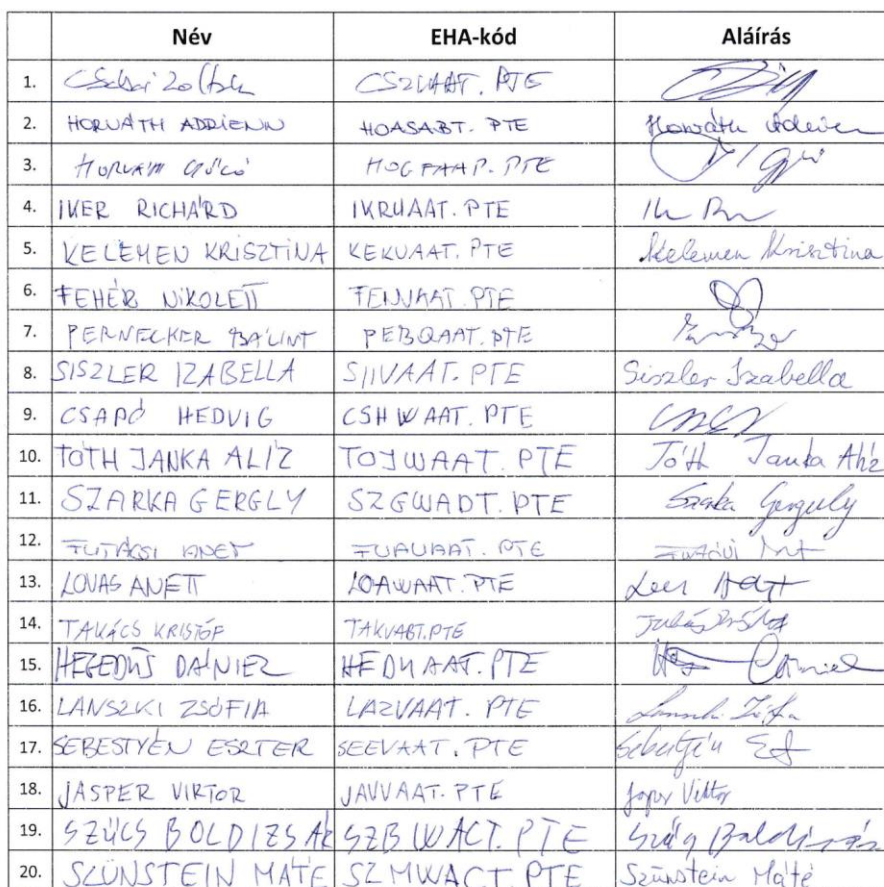 Név EHA-kód Aláírás
1. Csabai Zoltán CSZVAAT. PTE
2. HORVÁTH ADRIENN HOASABT. PTE Horváth Adrienn
3. HORVÁTH GYŐGŐ HOGFAAP. PTE
4. IKER RICHÁRD IKRUAAT. PTE
5. KELEMEN KRISZTINA KEKVAAT. PTE Kelemen Krisztina
6. FEHÉR NIKOLETT FENVAAT. PTE
7. PERNECKER BÁLINT PEBQAAT. PTE
8. SISZLER IZABELLA SIIVAAT. PTE Siszler Izabella
9. CSAPÓ HEDVIG CSHWAAT. PTE
10. TÓTH JANKA ALÍZ TOJWAAT. PTE Tóth Janka Alíz
11. SZARKA GERGLY SZGWADT. PTE Szarka Gergely
12. FUTÁCSI ANET FUAUAAT. PTE
13. LOVAS ANETT LOAWAAT. PTE
14. TAKÁCS KRISTÓF TAKVABT.PTE
15. HEGEDŰS DÁNIEL HEDUAAT. PTE Dániel
16. LANSZKI ZSÓFIA LAZVAAT. PTE Lanszki Zsófia
17. SEBESTYÉN ESZTER SEEVAAT. PTE Sebestyén
18. JÁSPER VIKTOR JAVVAAT. PTE Jásper Viktor
19. SZŰCS BOLDIZSÁR SZBWACT. PTE Szűcs Boldizsár
20. SZÜNSTEIN MÁTÉ SZMWACT. PTE Szünstein Máté